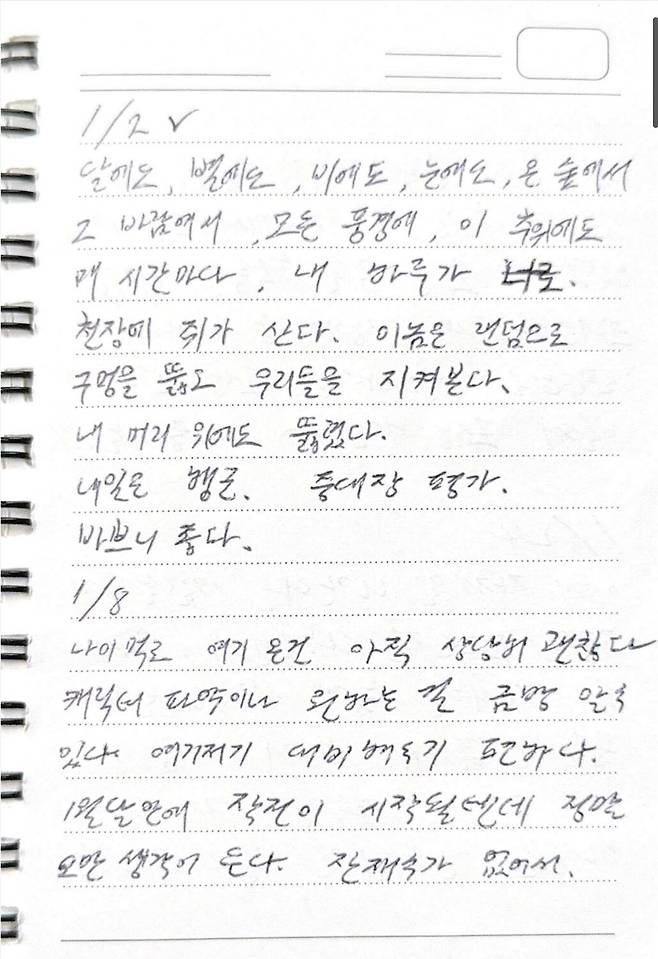 1/2 ✓
달에도, 별에도, 비에도, 눈에도, 온 숲에서
그 바람에서, 모든 풍경에, 이 추위에도
매 시간마다, 내 하루가 너로.
천장에 쥐가 산다. 이놈은 랜덤으로
구멍을 뚫고 우리들을 지켜본다.
내 머리 위에도 뚫렸다.
내일은 행군. 중대장 평가.
바쁘니 좋다.
1/8
나이 먹고 여기 온건 아직 상당히 괜찮다
캐릭터 파악이나 원하는 걸 금방 알 수
있다. 여기저기 대비해두기 편하다.
1월달 안에 작전이 시작될텐데 정말
오만 생각이 든다. 잔재주가 없어서.